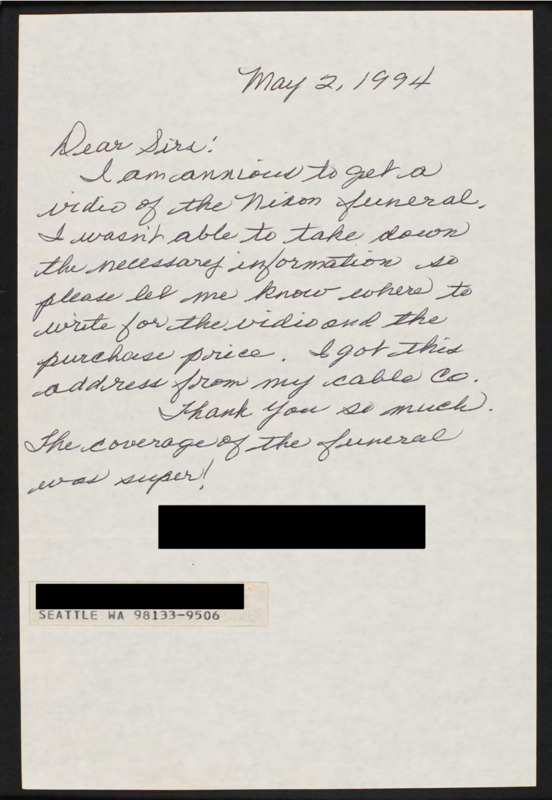 May 2, 1994
Dear Sirs:
I am annious to get a
vidio of the Nixon funeral.
I wasn't able to take down
the necessary information so
please let me know where to
write for the vidio and the
purchase price. I got this
address from my cable co.
Thank you so much.
The coverage of the funeral
was super!
SEATTLE WA 98133-9506